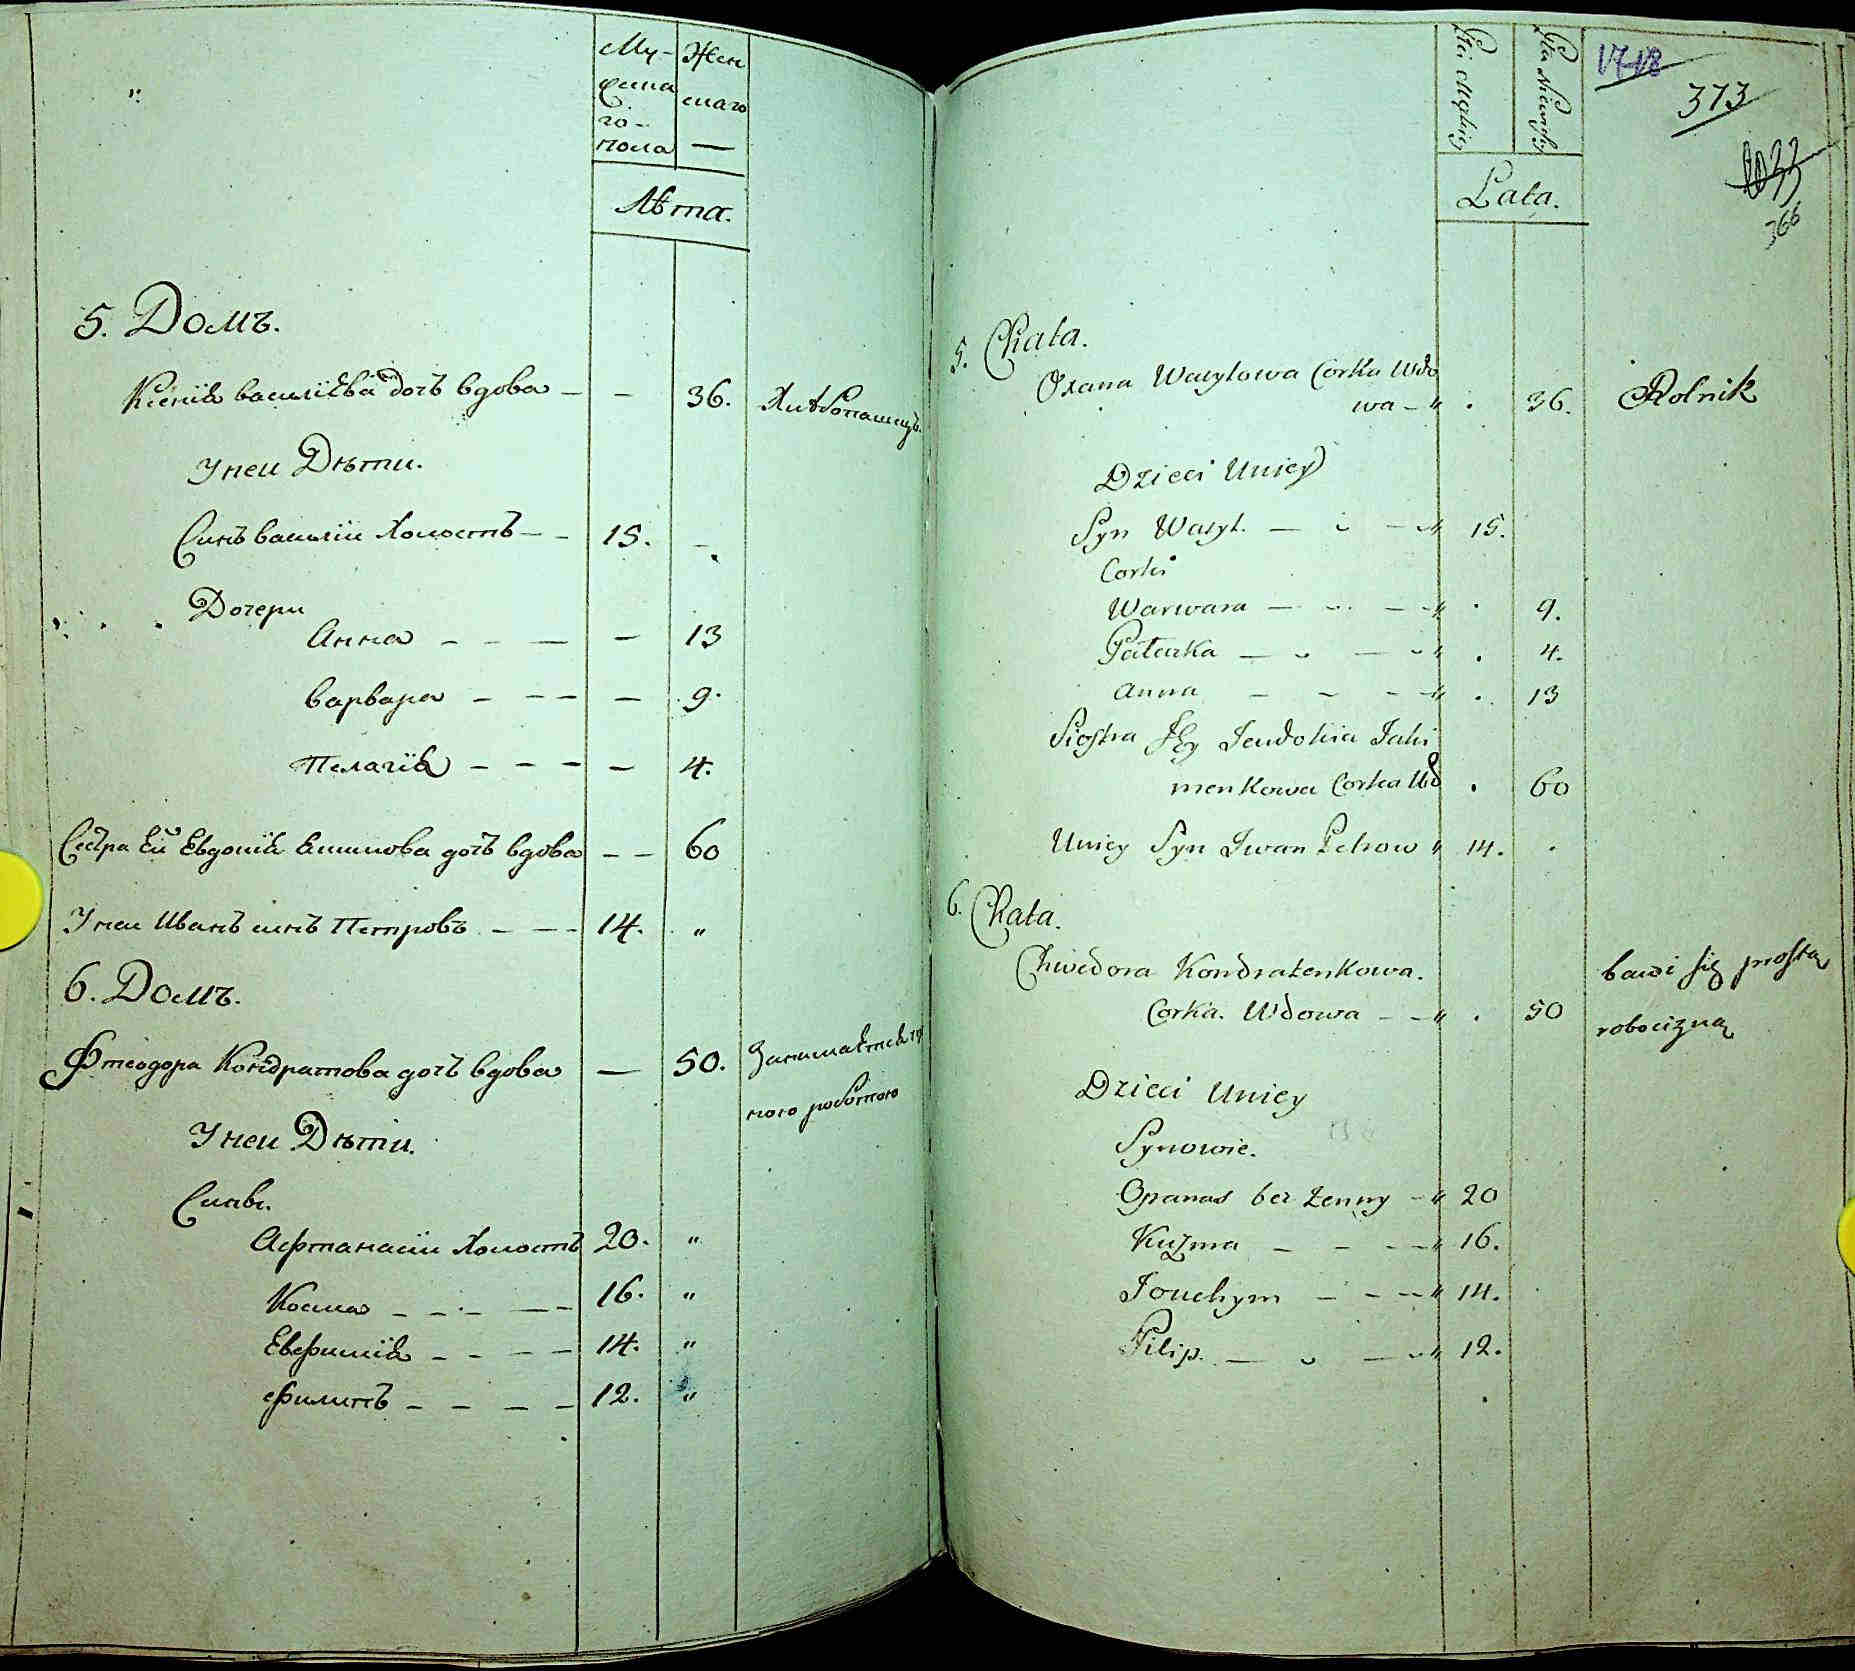 Му- Жен
жеска скаго
го -
пола —
Лѣта.
5. Домъ.
Ксенія василіева дочь вдова — — 36. Хлѣбопашецъ.
У неи Дѣти.
Синъ василіи Холостъ — — 15. —
Дочери
Анна — — — — 13
варвара — — — — 9.
Пелагія — — — — 4.
Сестра Ей Евдокія Акимова дочь вдова — — 60
У неи Иванъ синъ Петровъ — — — 14. "
6. Домъ.
Фтеодора Кондратова дочь вдова — 50. Занимается
ною работою
У неи Дѣти.
Синове.
Афтанасіи Холостъ 20. "
Косма — — — — — 16. "
Евфимій — — — — 14. "
Филипъ — — — — 12. "
1718
373
1033
366
Płci Męskiej
Płci Niewieskiej
Lata.
5. Chata.
Oxana Wasylowa Corka Wdo
wa — " . 36. Rolnik
Dzieci Uniey
Syn Wasyl. — — " 15.
Corki
Warwara — — — " . 9.
Palarka — — — " . 4.
Anna — — — " . 13
Siostra Jey Jewdokia Jaki
menkowa Corka Wd . 60
Uniey Syn Iwan Petrow " 14. .
6. Chata.
Chwedora Kondratenkowa.
Corka. Wdowa — — " . 50
bawi się prostą
robocizną
Dzieci Uniey
Synowie.
Opanas bez żenny — " 20
Kuzma — — — — " 16.
Jouchym — — — " 14.
Filip. — — — " 12.